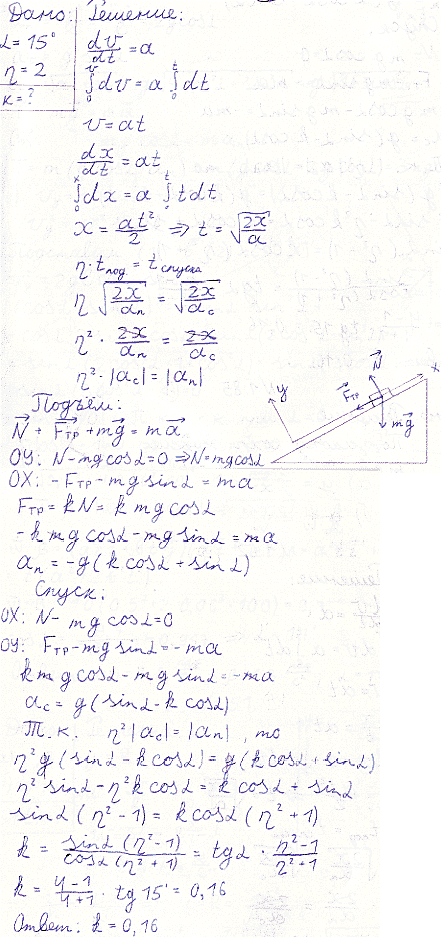 Дано: Решение:
α = 15°
η = 2
k = ?
dv/dt = a
∫₀ᵛ dv = a ∫₀ᵗ dt
v = at
dx/dt = at
∫₀ˣ dx = a ∫₀ᵗ t dt
x = at²/2 ⇒ t = √(2x/a)
η · tпод = tспуска
η √(2x/aп) = √(2x/aс)
η² · 2x/aп = 2x/aс
η² · |aс| = |aп|
Подъём:
N⃗ + F⃗тр + mg⃗ = ma⃗
ОУ: N - mg cosα = 0 ⇒ N = mg cosα
ОХ: - Fтр - mg sinα = ma
Fтр = kN = k mg cosα
- k mg cosα - mg sinα = ma
aп = -g (k cosα + sinα)
y
x
N⃗
F⃗тр
mg⃗
Спуск:
ОХ: N - mg cosα = 0
ОУ: Fтр - mg sinα = - ma
k mg cosα - mg sinα = - ma
aс = g (sinα - k cosα)
Т.к. η² |aс| = |aп|, то
η² g (sinα - k cosα) = g (k cosα + sinα)
η² sinα - η² k cosα = k cosα + sinα
sinα (η² - 1) = k cosα (η² + 1)
k = sinα (η² - 1)/cosα (η² + 1) = tgα · η² - 1/η² + 1
k = 4 - 1/4 + 1 · tg 15° = 0,16
Ответ: k = 0,16